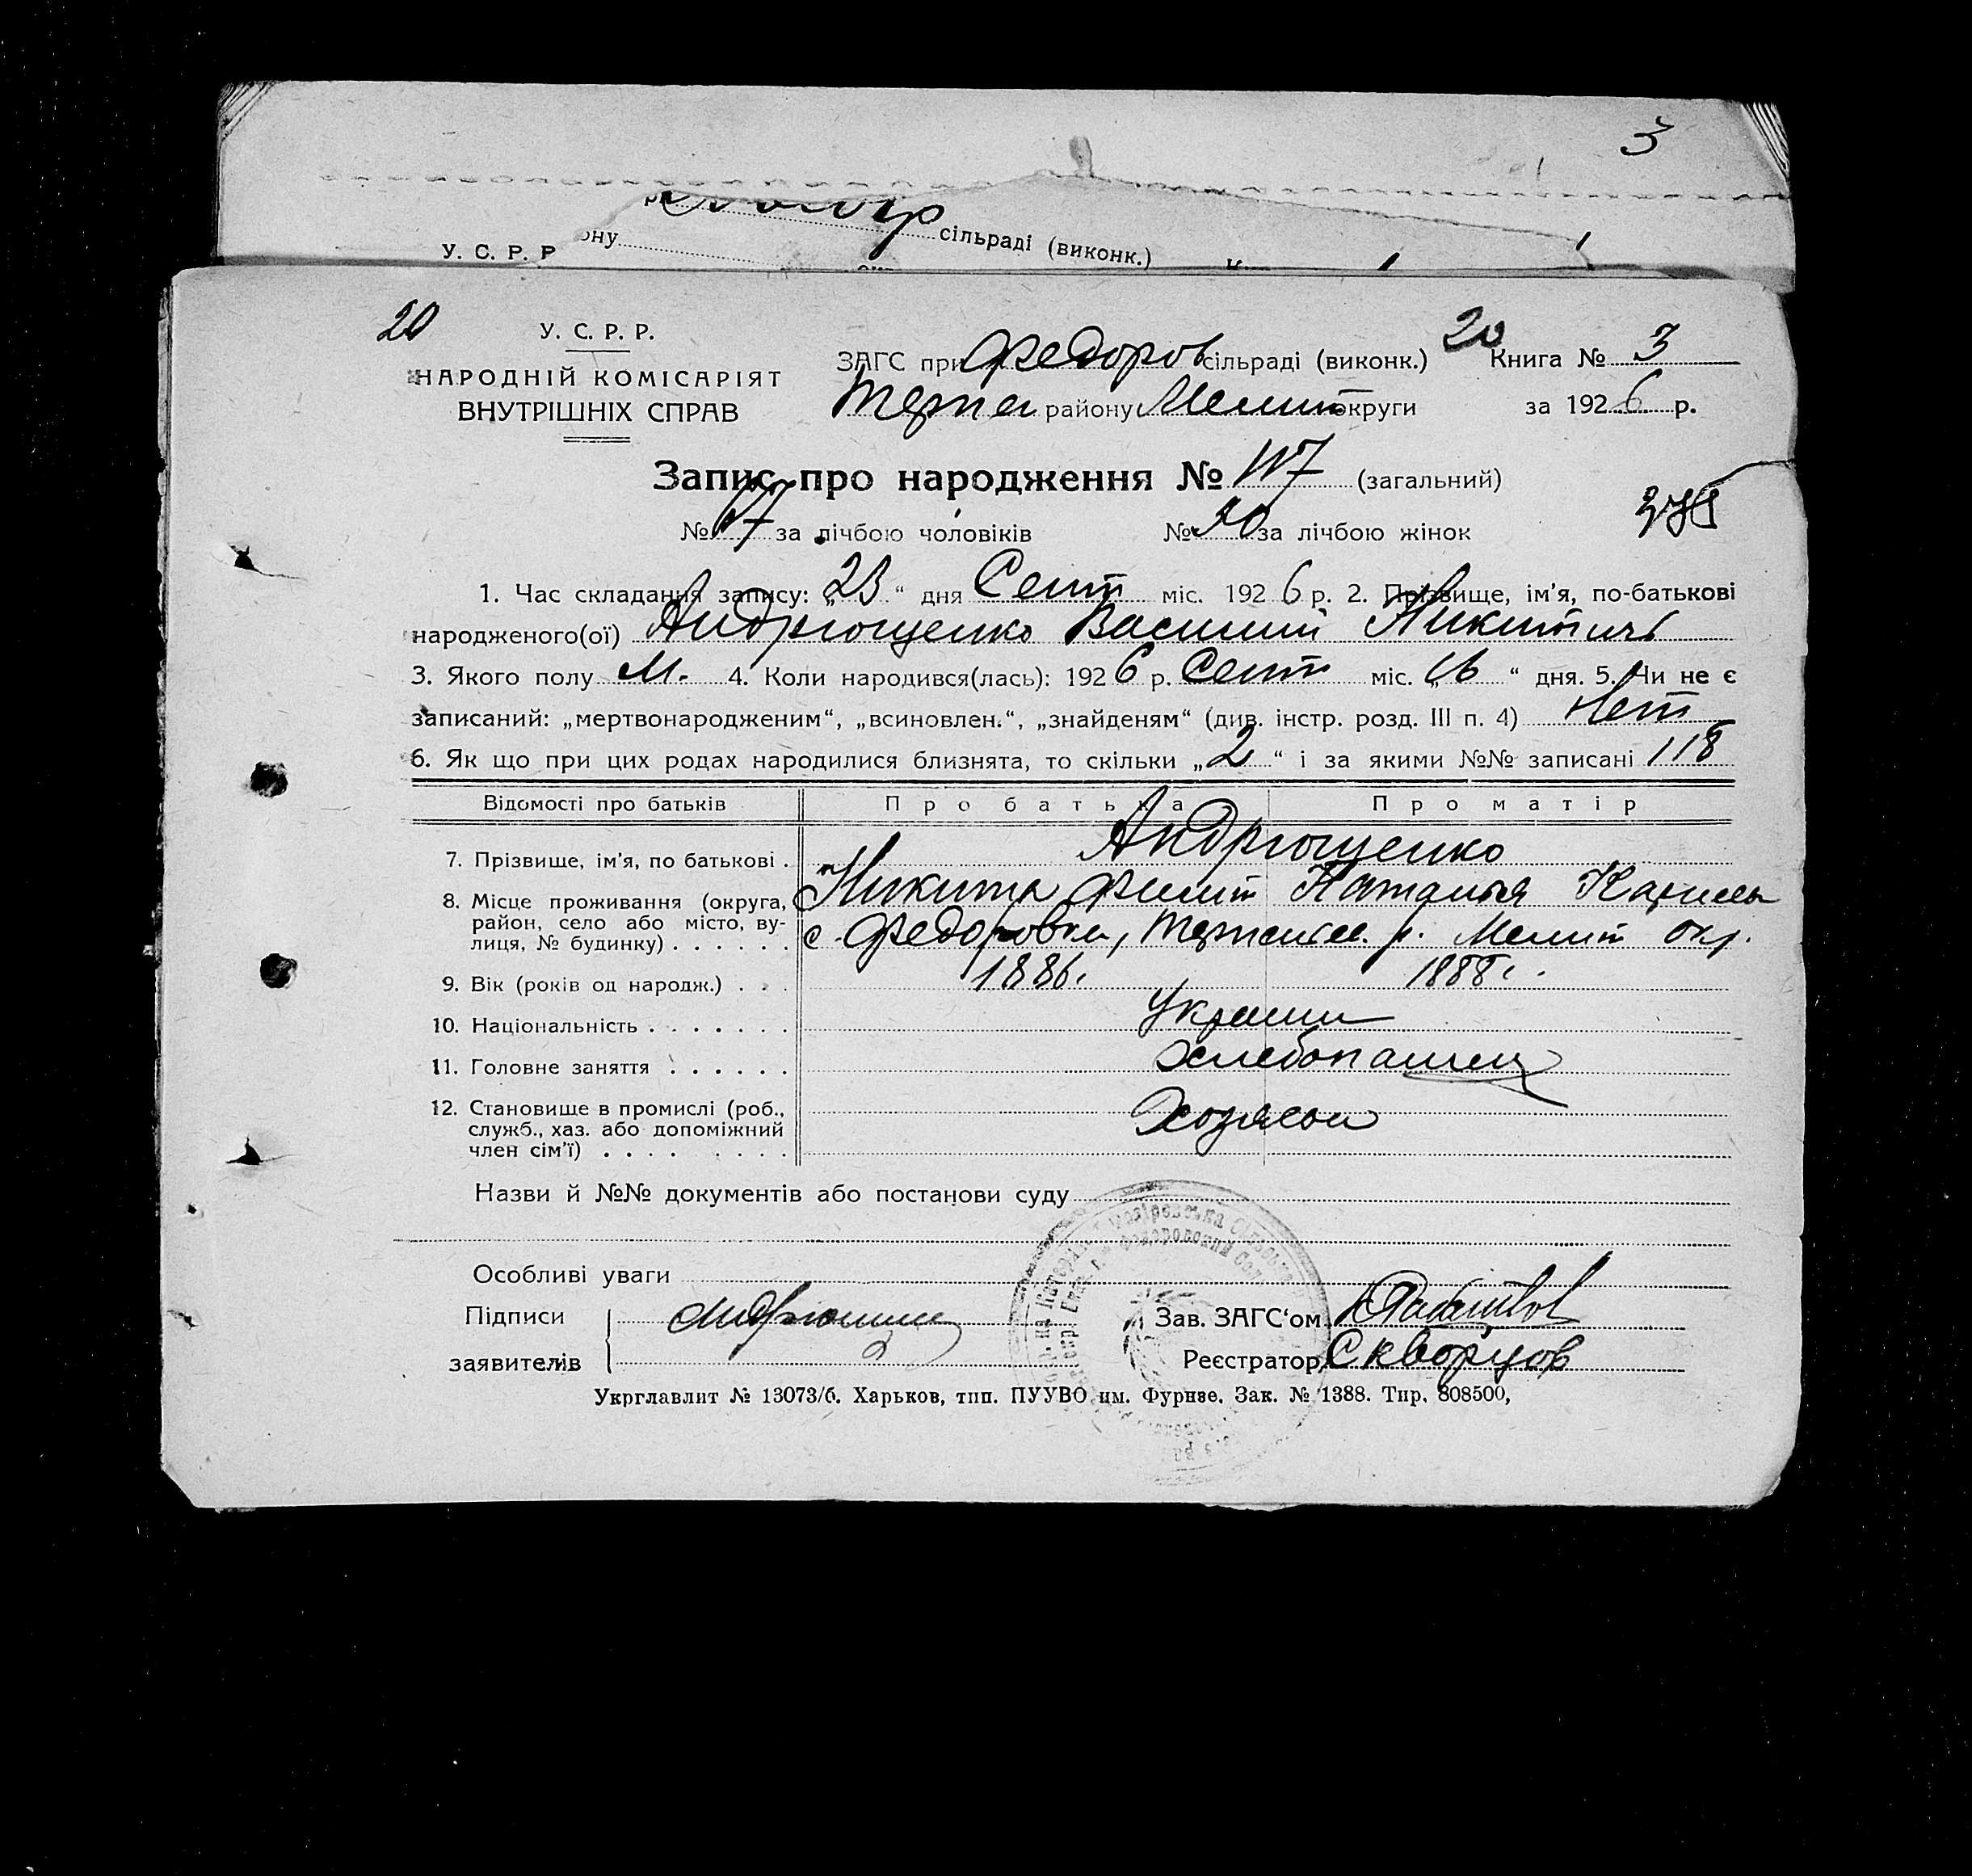 3
сільраді (виконк.)
ону
У. С. Р. Р
20
У. С. Р. Р.
НАРОДНІЙ КОМІСАРІЯТ
ВНУТРІШНІХ СПРАВ
ЗАГС при Федоров сільраді (виконк.) 20 Книга № 3
району Мелит округи за 1926 р.
Запис про народження № 117 (загальний)
№ 67 за лічбою чоловіків № 50 за лічбою жінок
1. Час складання запису: „23“ дня Сент міс. 1926 р. 2. Прізвище, ім'я, по-батькові
народженого(ої) Андрющенко Василий Никитичъ
3. Якого полу М. 4. Коли народився(лась): 1926 р. Сент міс. „16“ дня. 5. Чи не є
записаний: „мертвонародженим“, „всиновлен.“, „знайденям“ (див. інстр. розд. III п. 4) Нет
6. Як що при цих родах народилися близнята, то скільки „2“ і за якими №№ записані 118
Відомості про батьків Про батька Про матір
7. Прізвище, ім'я, по батькові . Андрющенко
Никита Филип Наталья
8. Місце проживання (округа,
район, село або місто, ву-
лиця, № будинку) . . . . . . с. Федоровка, р. Мелит окр.
9. Вік (років од народж.) . . . 1886. 1888г.
10. Національність . . . . . . . Украин
11. Головне заняття . . . . . . хлебопашец
12. Становище в промислі (роб.,
служб., хаз. або допоміжний
член сім'ї) . . . . . . . . . Хозяева
Назви й №№ документів або постанови суду
Особливі уваги
Підписи
заявителів
Зав. ЗАГС'ом
Реєстратор Скворцов
Укрглавлит № 13073/б. Харьков, тип. ПУУВО им. Фрунзе. Зак. № 1388. Тир. 808500,